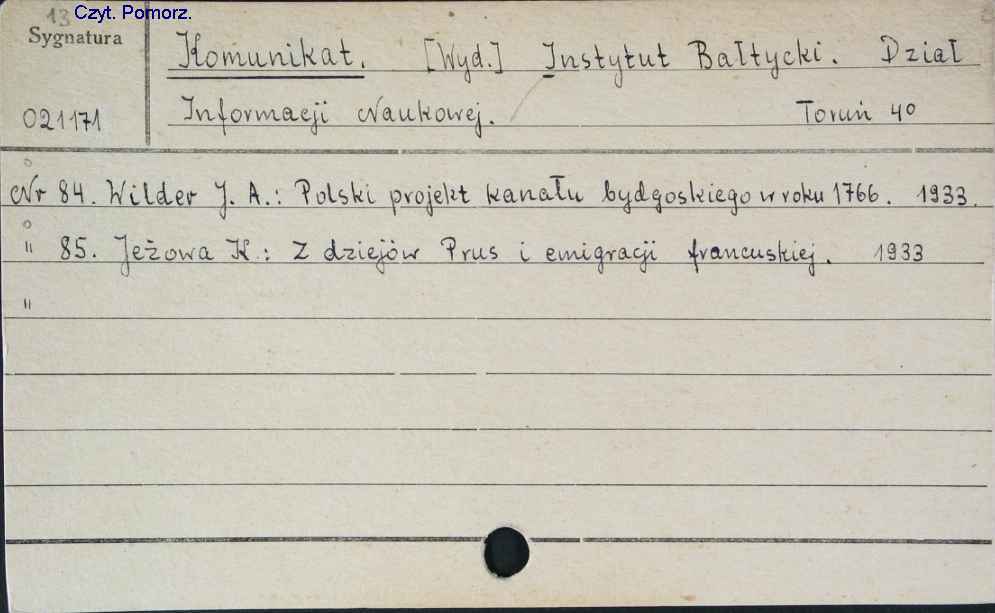 13 Czyt. Pomorz.
Sygnatura
Komunikat. [Wyd.] Instytut Bałtycki. Dział
021171 Informacji Naukowej. Toruń 4o
Nr 84. Wilder J. A.: Polski projekt kanału bydgoskiego w roku 1766. 1933.
" 85. Jeżowa K.: Z dziejów Prus i emigracji francuskiej. 1933
"